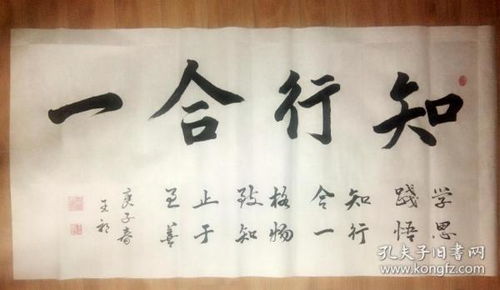 知行合一
学思
践悟
知行
合一
格物
致知
止于
至善
庚子春
孔夫子旧书网
www.kongfz.com